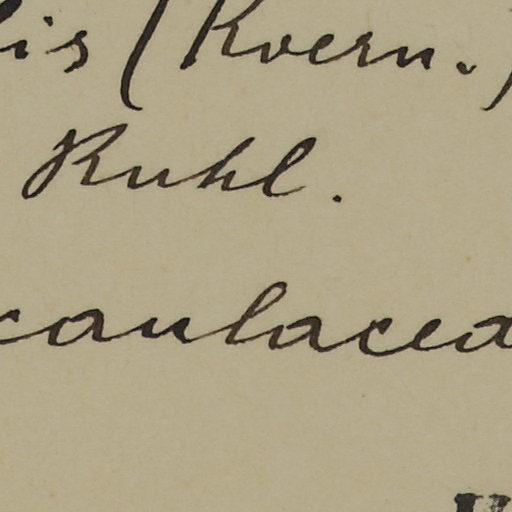 lis (Koern.)
Ruhl.
caulacea